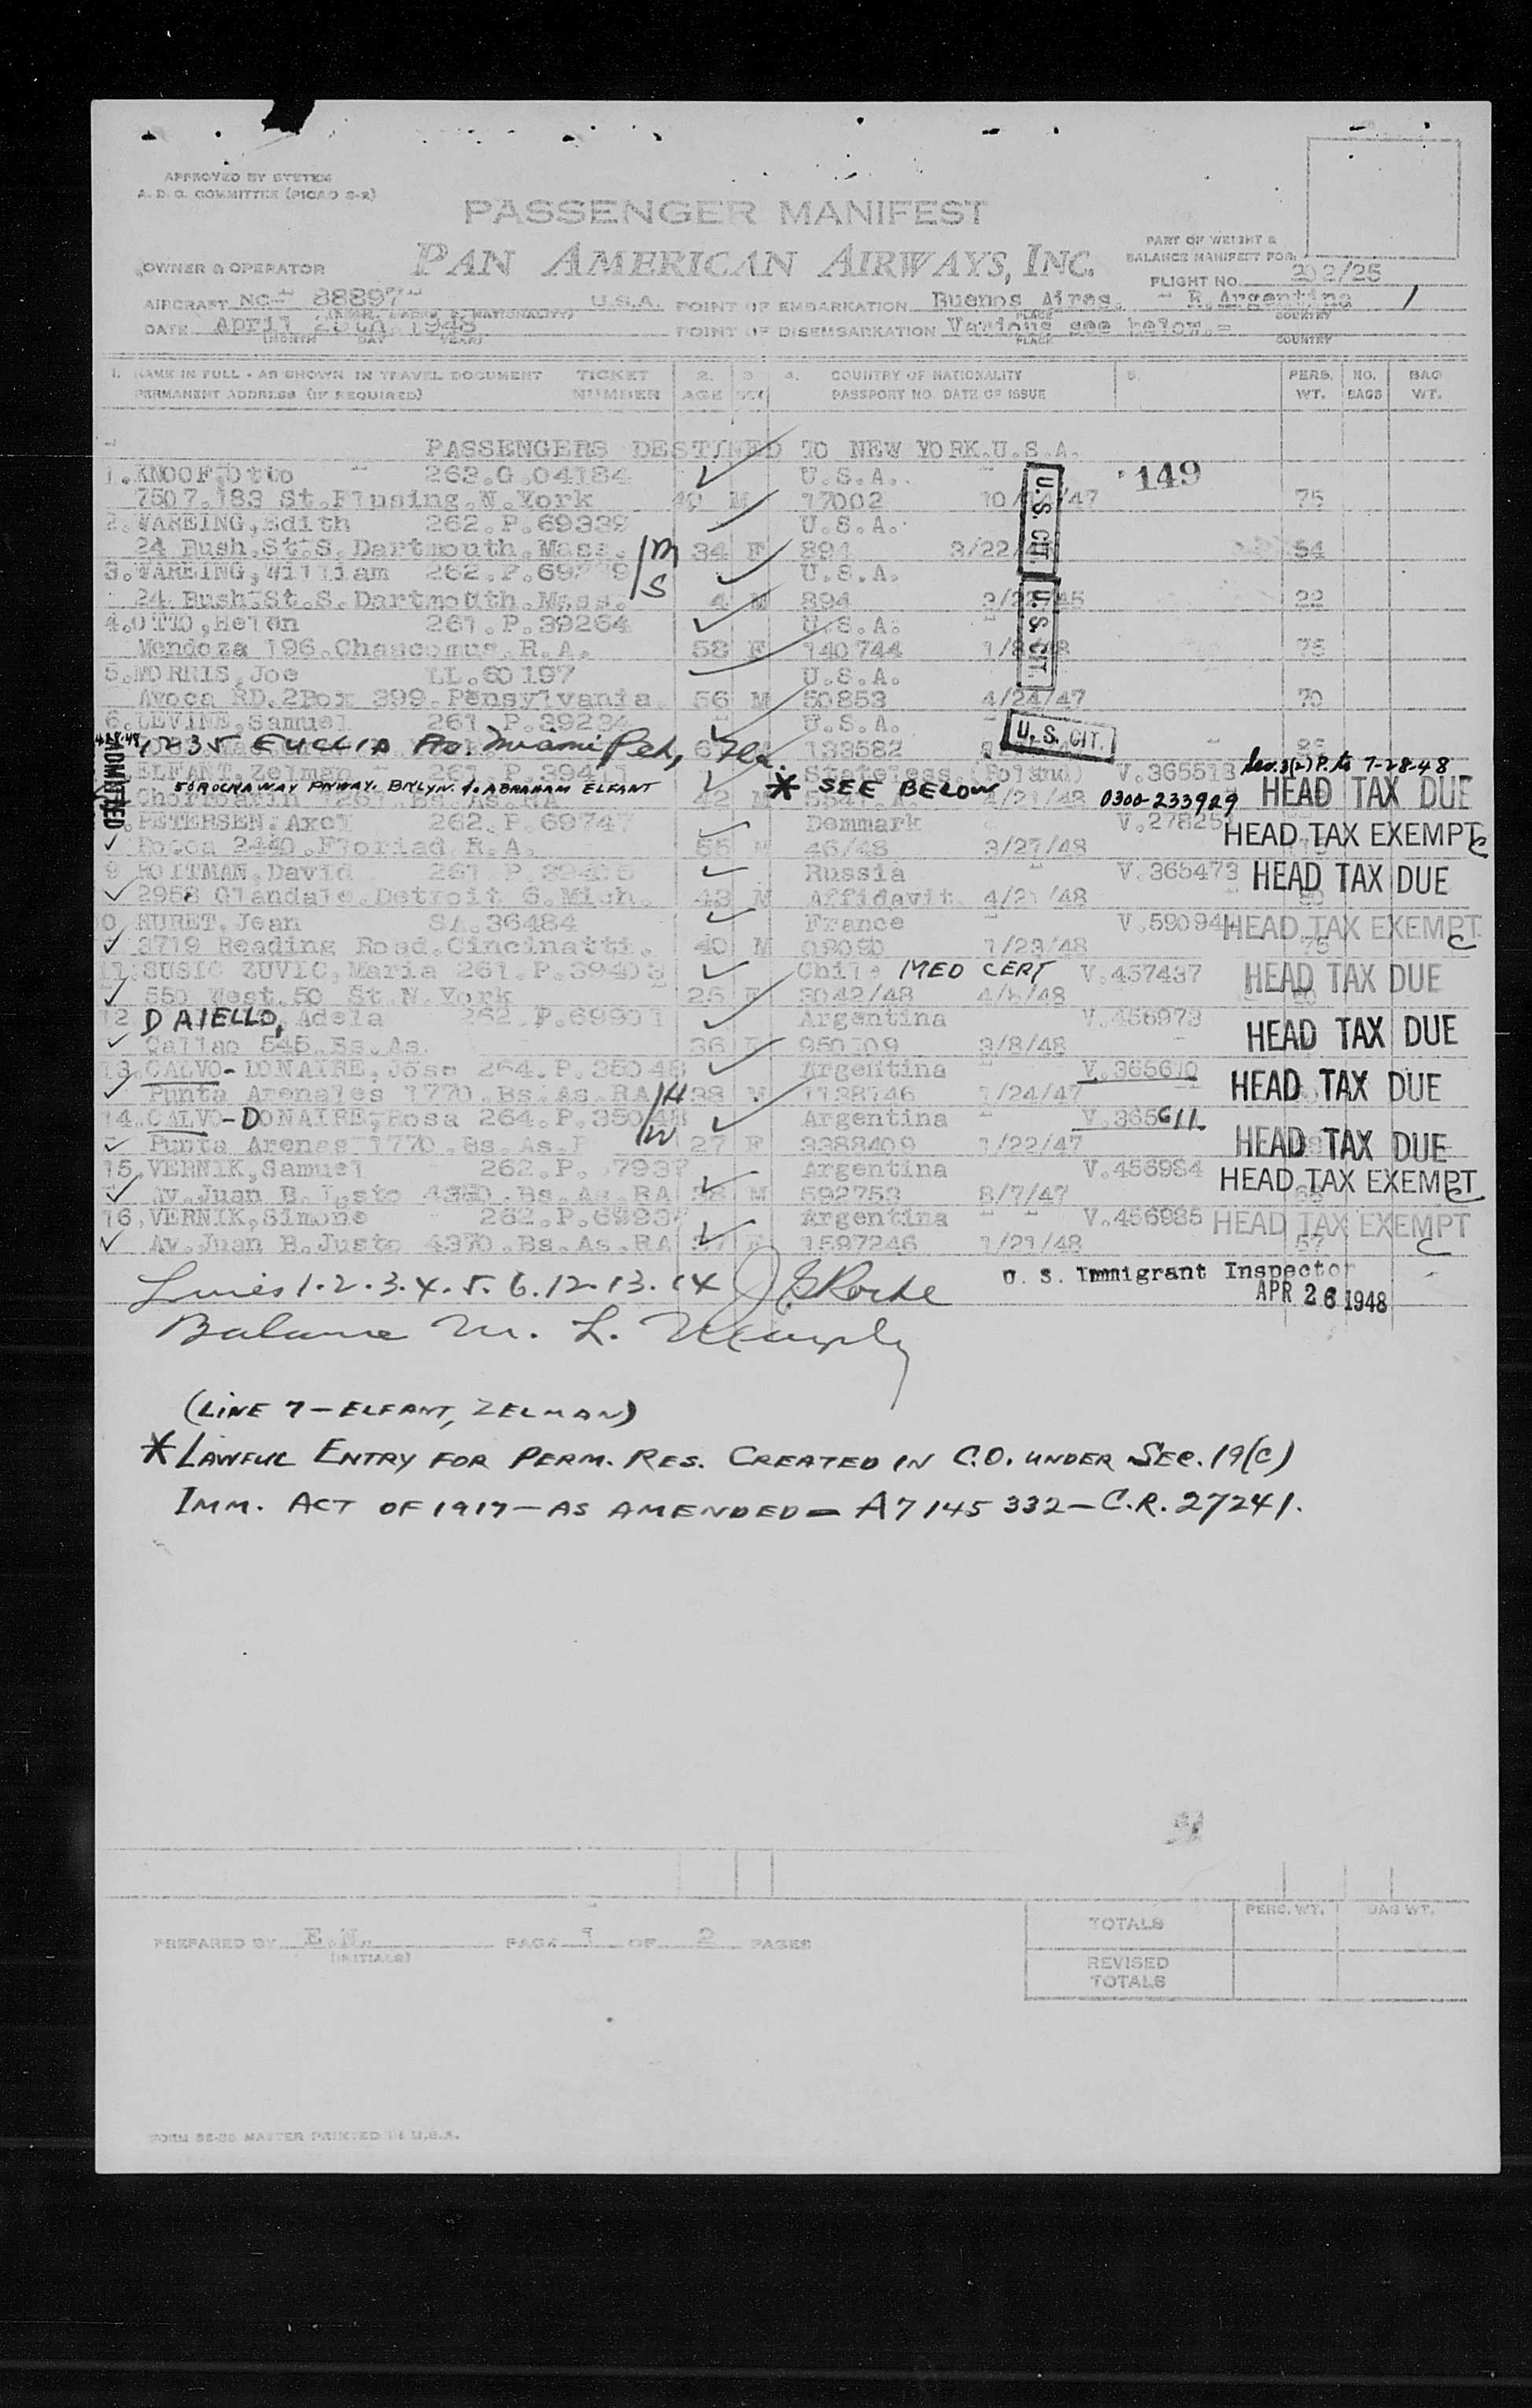 APPROVED BY SYSTEM
A. D. G. COMMITTEE (PICAO S-2)
PASSENGER MANIFEST
PAN AMERICAN AIRWAYS, INC.
PART OF WEIGHT &
BALANCE MANIFEST FOR:
OWNER & OPERATOR
FLIGHT NO. 202/25
AIRCRAFT NC- 88897 U.S.A. POINT OF EMBARKATION Buenos Aires. - R.Argentina 1
PLACE COUNTRY
DATE April 1948 POINT OF DISEMBARKATION Various see below.=
(MONTH DAY YEAR) PLACE COUNTRY
1. NAME IN FULL - AS SHOWN IN TRAVEL DOCUMENT TICKET 2. 3. 4. COUNTRY OF NATIONALITY 5. PERS. NO. BAG
PERMANENT ADDRESS (IF REQUIRED) NUMBER AGE SEX PASSPORT NO. DATE OF ISSUE WT. BAGS WT.
PASSENGERS DESTINED TO NEW YORK.U.S.A.
1.KNOOF,Otto 263.G.04184 U.S.A. 149
7507.183 St.Flusing.N.York 40 M 17002 /47 75
2.WAREING,Edith 262.P.69339 U.S.A.
24 Bush.St.S.Dartmouth.Mass. M 34 F 894 3/22/ 54
3.WAREING,William 262.P. U.S.A.
24 Bush.St.S.Dartmouth.Mass. S 4 M 894 22
4.OTTO,Helen 261.P.39264 U.S.A.
Mendoza 196.Chascomus.R.A. 58 F 140744 75
5.MORRIS,Joe LL.60197 U.S.A.
Avoca RD.2Box 399.Pensylvania. 56 M 50853 4/24/47 70
U.S. CIT.
U.S. CIT.
6.LEVINE,Samuel 261.P.39234 U.S.A. U.S. CIT.
1235 EUCLID Fla. 133582
ADMITTED
ELFANT,Zelman 261.P.39411 Stateless.(Poland) V.365513 Sec.3(2) P. to 7-28-48
ROCKAWAY PKWAY. BKLYN. ABRAHAM ELFANT 42 M * SEE BELOW 4/21/48 0300-233929 HEAD TAX DUE
PETERSEN.Axel 262.P.69747 Denmark HEAD TAX EXEMPT
2440.Floriad R.A. 55 M 46/48 3/27/48
9 ROITMAN,David 261.P. Russia V.365473 HEAD TAX DUE
2958 Glandale.Detroit 6.Mich. 43 M Affidavit 4/21/48
HURET,Jean SA.36484 France HEAD TAX EXEMPT
3719 Reading Road.Cincinatti. 40 M 08090 1/23/48 75
11.SUSIC ZUVIC,Maria 261.P.39403 Chile MED CERT V.457437 HEAD TAX DUE
550 West.50 St.N.York 25 F 3042/48
12 DAIELLO, Adela 262.P.69901 Argentina V.456973 HEAD TAX DUE
Qallao 545.Bs.As. 36 F 3/8/48
13.CALVO-DONAIRE,Jose 264.P. Argentina V.365610 HEAD TAX DUE
Punta Arenales 1770.Bs.As.RA H 38 M 1138746 1/24/47
14.CALVO-DONAIRE,Rosa 264.P. Argentina V.365611.
Punta Arenas 1770.Bs.As. W 27 F 3388409 1/22/47 HEAD TAX DUE
15.VERNIK,Samuel 262.P. Argentina V.456984 HEAD TAX EXEMPT
Av.Juan B.Justo Bs.As.RA 38 M 592753 8/7/47
16.VERNIK,Simone 262.P. Argentina V.456985 HEAD TAX EXEMPT
Av.Juan B.Justo 4370.Bs.As.RA F 1597246 1/21/48 57
Lines 1.2.3.4.5.6.12.13.14 U. S. Immigrant Inspector
APR 26 1948
Balance M. L. Murphy
(LINE 7-ELFANT, ZELMAN)
* LAWFUL ENTRY FOR PERM. RES. CREATED IN C.O. UNDER SEC. 19(C)
IMM. ACT OF 1917-AS AMENDED-A7145332-C.R. 27241.
PREPARED BY E.N. PAGE 1 OF 2 PAGES
(INITIALS)
PERS. WT. BAG WT.
TOTALS
REVISED
TOTALS
MASTER PRINTED IN U.S.A.